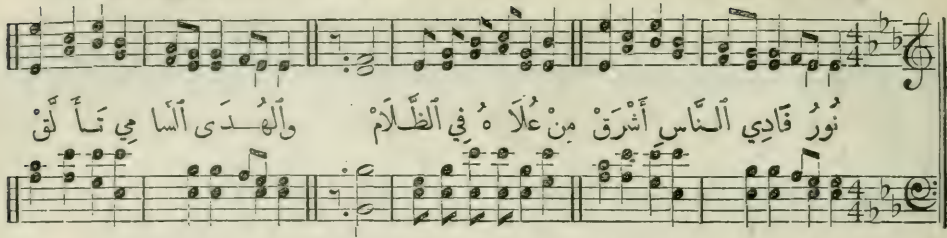 نُورُ فَادِي ٱلنَّاسِ أَشْرَقْ مِنْ عُلَا هُ فِي ٱلظَّلَامْ وَٱلْهُدَى ٱلسَّا مِي تَأَ لَّقْ